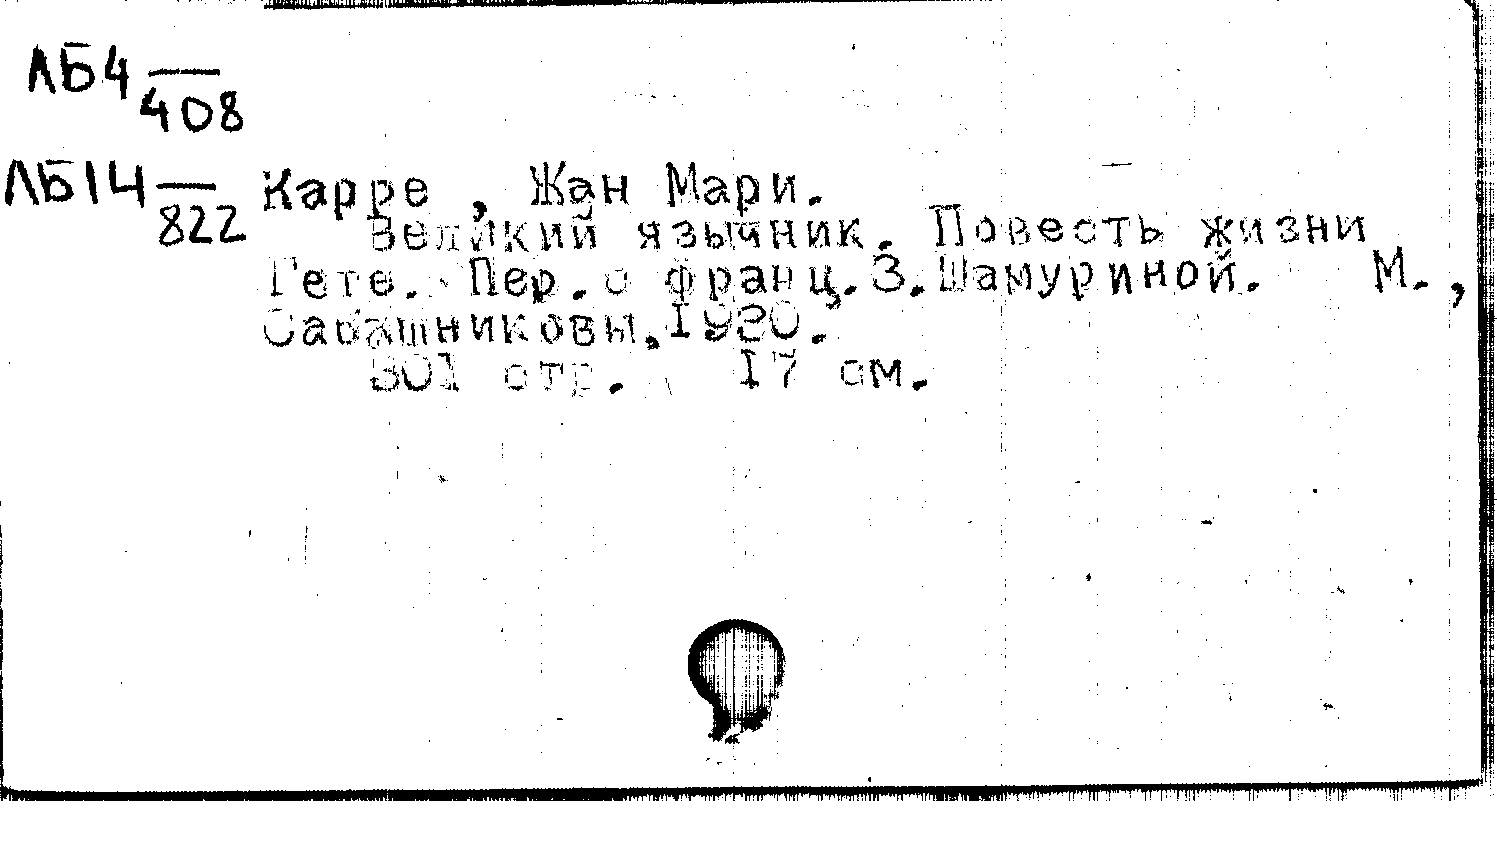 ЛБ4 —
408
ЛБ14 —
822
Карре , Жан Мари.
Великий язычник. Повесть жизни
Гете. Пер. с франц.З.Шамуриной. М.,
Сабашниковы,1930.
301 стр. 17 см.